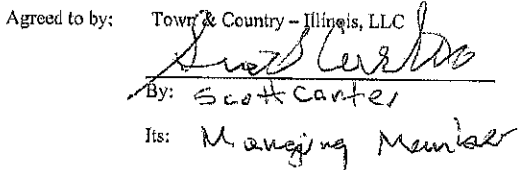 Agreed to by: Town & Country – Illinois, LLC
By: Scott Carter
Its: Managing Member